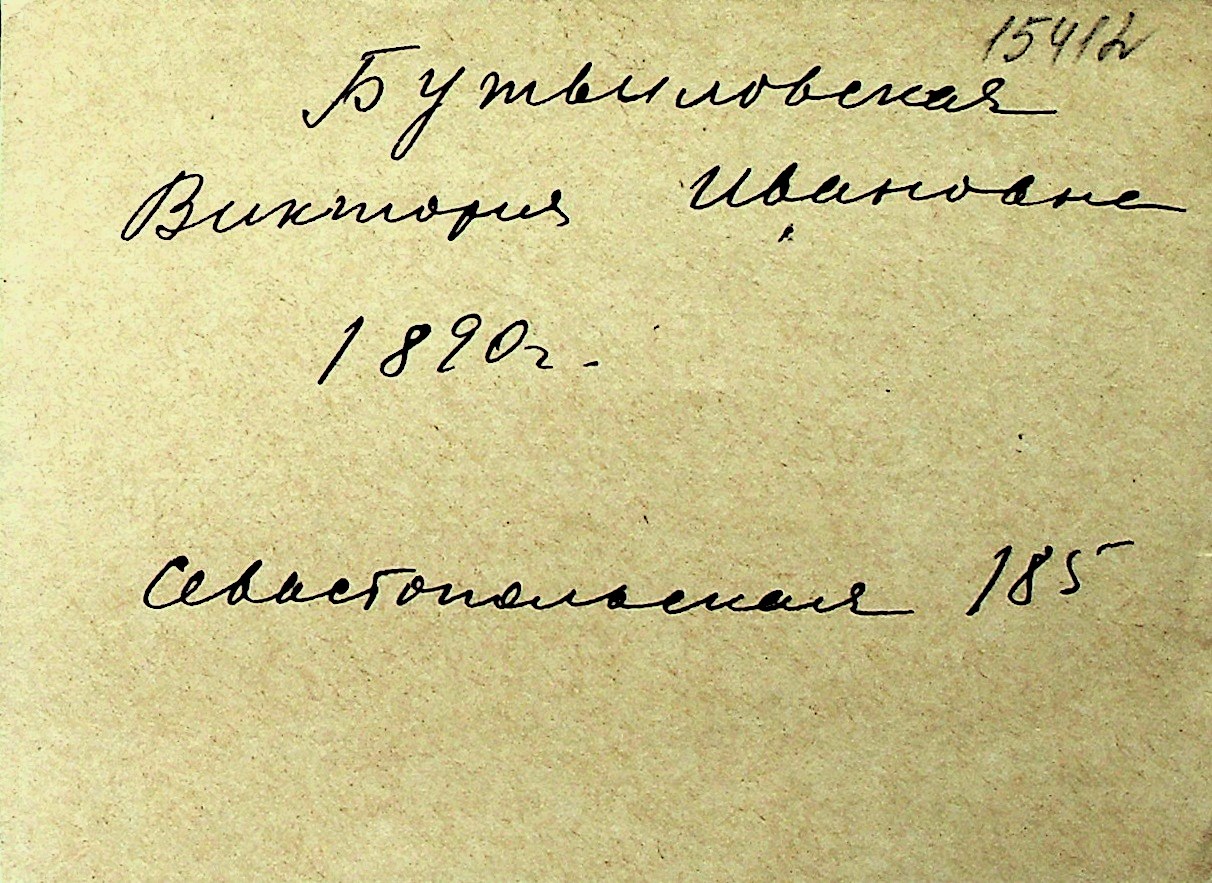 15412
Бутвиловская
Виктория Ивановна
1890г.
Севастопольская 185